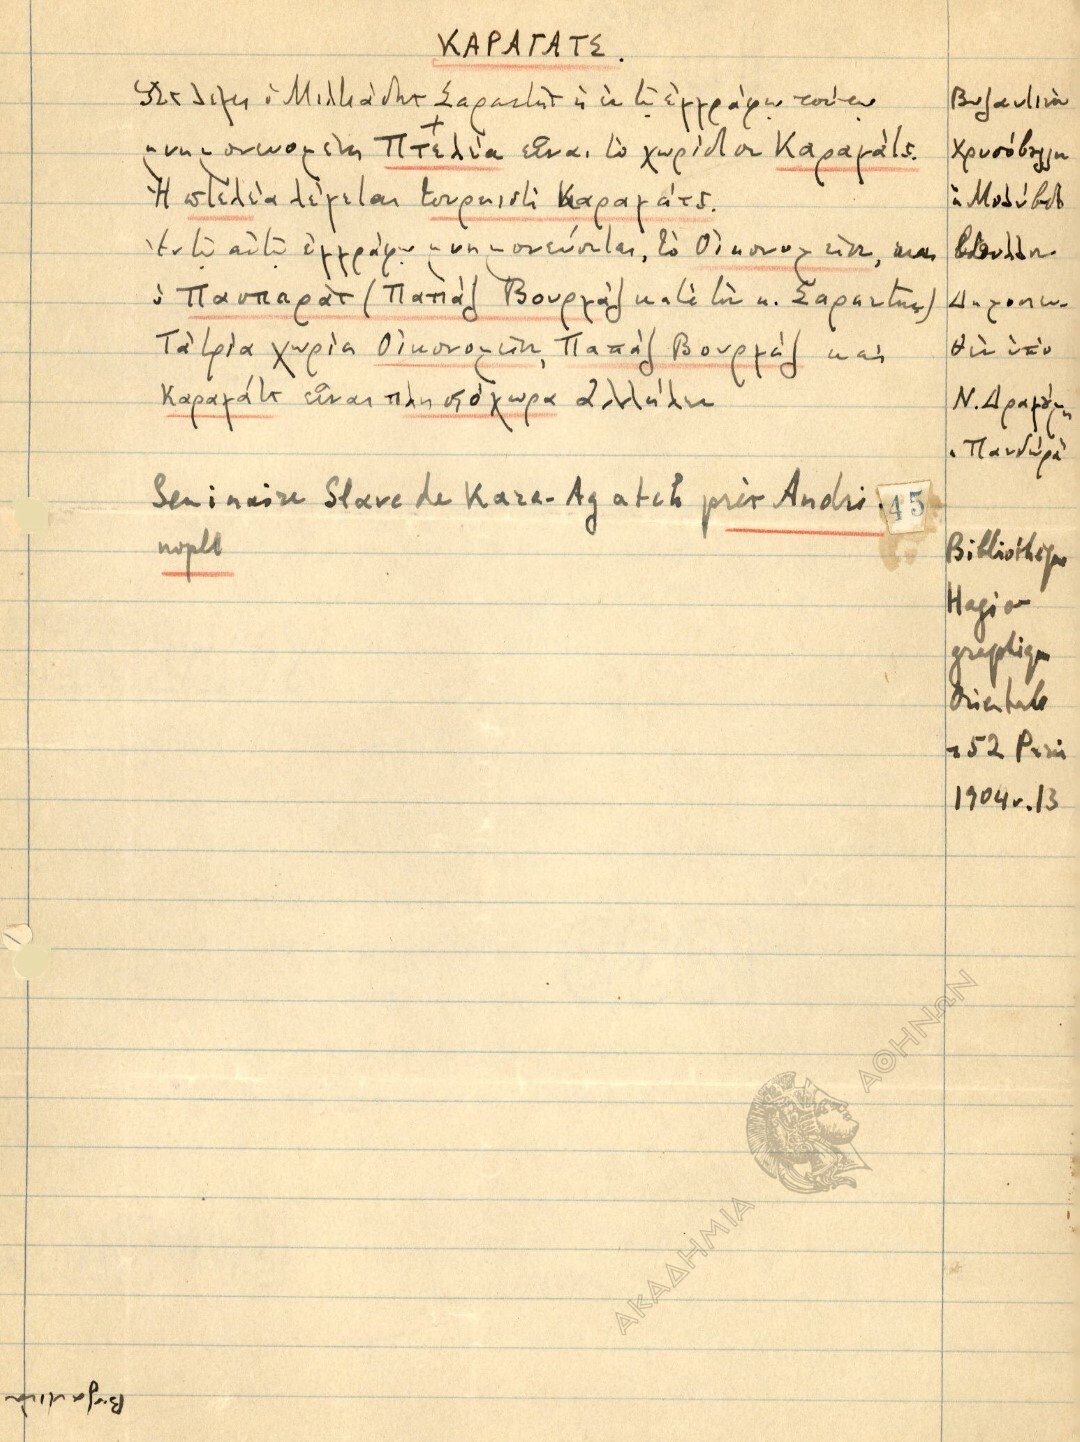 ΚΑΡΑΓΑΤΣ.
Ὡς λέγει ὁ Μιλτιάδης Σαραντῆς ἡ ἐν τῷ ἐγγράφῳ τούτῳ
μνημονευομένη Πτελέα εἶναι τὸ χωρίδιον Καραγάτς.
Ἡ πτελέα λέγεται τουρκιστὶ Καραγάτς.
Ἐν τῷ αὐτῷ ἐγγράφῳ μνημονεύονται, τὸ Οἰκονομεῖον, και
ὁ Πασπαρᾶς (Παπᾶζ Βουργᾶζ κατὰ τὸν κ. Σαραντην)
Τὰ τρία χωρία Οἰκονομεῖον, Παπάζ Βουργάζ και
Καραγάτς εἶναι πλησιόχωρα ἀλλήλων
Seminaire Slave de Kara-Agatch près Andri-
nople
45
Βυζαντινὰ
Χρυσόβουλλα
κ Μολυβδό
βουλλα
Δημοσιευ-
θὲν ὑπὸ
Ν. Δραγούμη
Πανδώρα
Bibliothèque
Hagio
graphique
Orientale
52 Paris
1904 v. 13
Βυζαντινὰ
ΑΚΑΔΗΜΙΑ ΑΘΗΝΩΝ